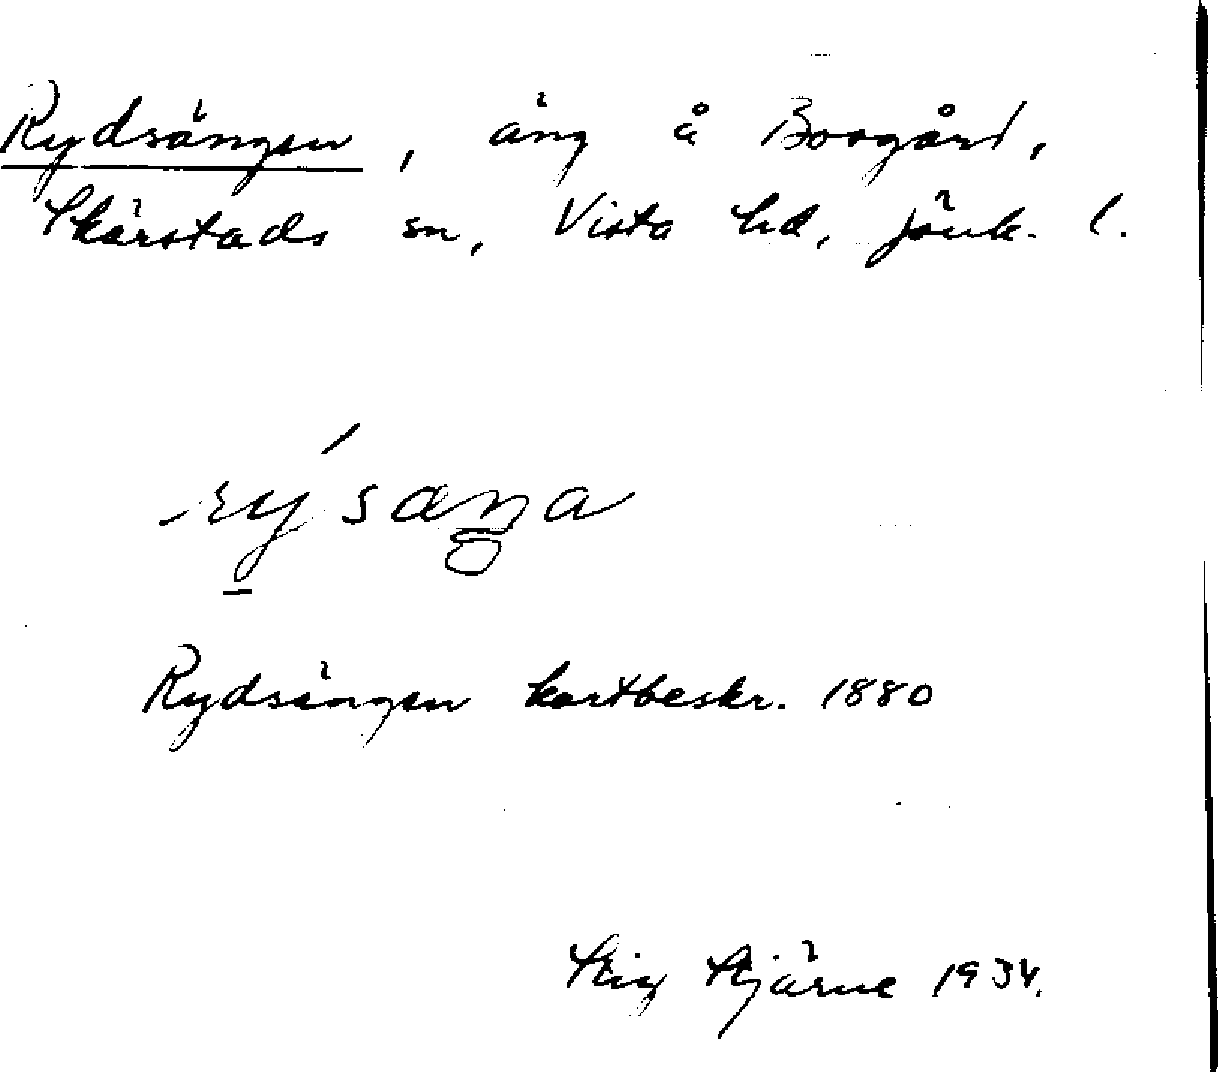 Rydsängen, äng å Boogård,
Skärstads sn, Vista hd, Jönk. l.
Rydsängen kartbeskr. 1880
Stig Stjärne 1934.